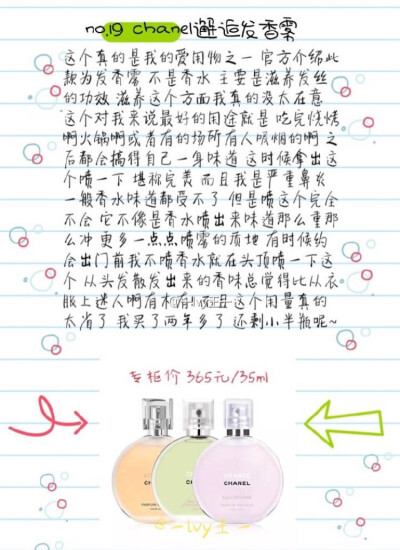 no.19 chanel邂逅发香雾
这个真的是我的爱用物之一 官方介绍此
款为发香雾 不是香水 主要是滋养发丝
的功效 滋养这个方面我真的没太在意
这个对我来说最好的用途就是 吃完烧烤
啊火锅啊或者有的场所有人吸烟的啊 之
后都会搞得自己一身味道 这时候拿出这
个喷一下 堪称完美 而且我是严重鼻炎
一般香水味道都受不了 但是喷这个完全
不会 它不像是香水喷出来味道那么重那
么冲 更多一点点喷雾的质地 有时候约
会出门前我不喷香水就在头顶喷一下这
个 从头发散发出来的香味总觉得比从衣
服上迷人啊有木有!而且这个用量真的
太省了 我买了两年多了 还剩小半瓶呢~
专柜价 365元/35ml
CHANEL
CHANEL
CHANEL
@一Ivy王一